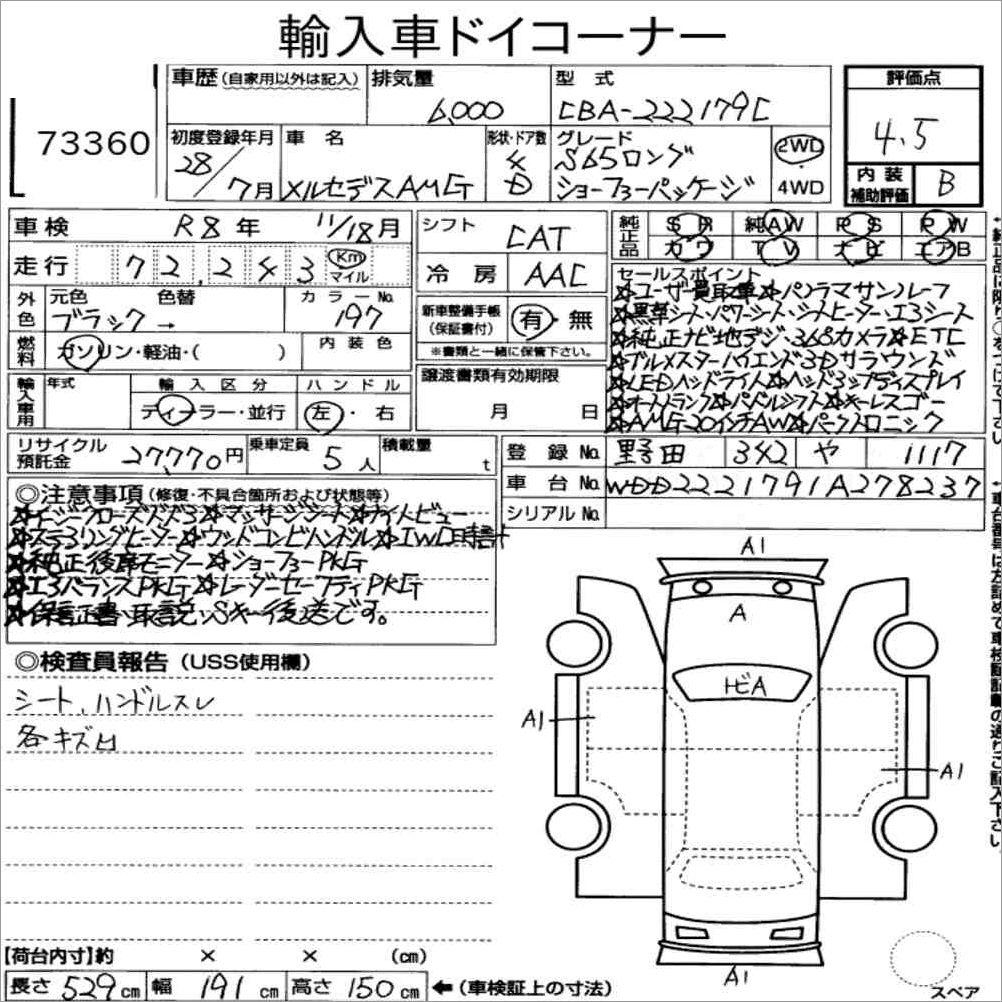 輸入車ドイコーナー
73360
車歴(自家用以外は記入) 排気量 6,000 型式 CBA-222179C 評価点 4.5
初度登録年月 28/7月 車名 メルセデスAMG 形状・ドア数 4 D グレード S65ロング ショーファーパッケージ 2WD 4WD
内装補助評価 B
車検 R8年 11/18月 シフト CAT 純正品 SR 純AW PS PW
走行 72,243 Km マイル 冷房 AAC カワ TV ナビ エアB
外色 元色 ブラック → 色替 カラーNo. 197 新車整備手帳(保証書付) 有・無
※書類と一緒に保管下さい。
燃料 ガソリン・軽油・( ) 内装色
輸入車用 年式 輸入区分 ディーラー・並行 ハンドル 左・右
譲渡書類有効期限 月 日
セールスポイント
☆ユーザー買取車☆パノラマサンルーフ
☆黒革シート・パワーシート・シートヒーター・エアシート
☆純正ナビ地デジ・360カメラ☆ETC
☆ブルメスターハイエンド3Dサラウンズ
☆LEDヘッドライト☆ヘッドアップディスプレイ
☆オートトランク☆パドルシフト☆キーレスゴー
☆AMG20インチAW☆パークトロニック
リサイクル預託金 27,770円 乗車定員 5人 積載量 t
登録No. 野田 342 や 1117
車台No. WDD2221791A278237
シリアルNo.
◎注意事項(修復・不具合箇所および状態等)
☆イージークローズドア☆マッサージシート☆ナイトビュー
☆ステアリングヒーター☆ウッドコンビハンドル☆IWC時計
☆純正後席モニター☆ショーファーPKG
☆エアバランスPKG☆レーダーセーフティPKG
☆保証書、取説、Sキー後送です。
◎検査員報告(USS使用欄)
シート、ハンドルスレ
各キズ凹
A1
A
トビA
A1
A1
A1
スペア
【荷台内寸】約 × × (cm)
長さ 529cm 幅 191cm 高さ 150cm ←(車検証上の寸法)
↑車台番号は左詰めで車検証記載の通りご記入下さい。